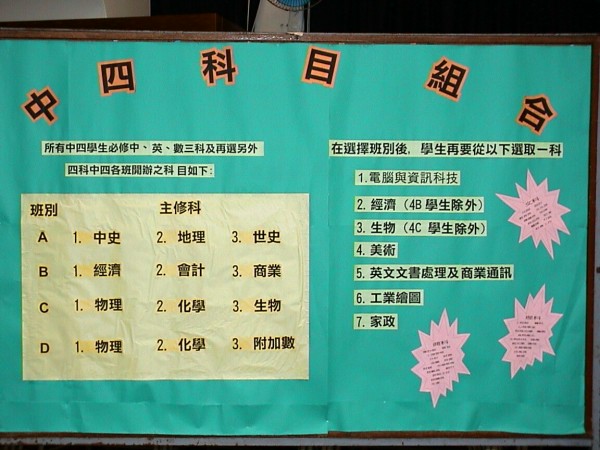 中四科目組合
所有中四學生必修中、英、數三科及再選另外
四科中四各班開辦之科目如下：
班別 主修科
A 1. 中史 2. 地理 3. 世史
B 1. 經濟 2. 會計 3. 商業
C 1. 物理 2. 化學 3. 生物
D 1. 物理 2. 化學 3. 附加數
在選擇班別後，學生再要從以下選取一科
1.電腦與資訊科技
2. 經濟（4B 學生除外）
3. 生物（4C 學生除外）
4. 美術
5. 英文文書處理及商業通訊
6. 工業繪圖
7. 家政